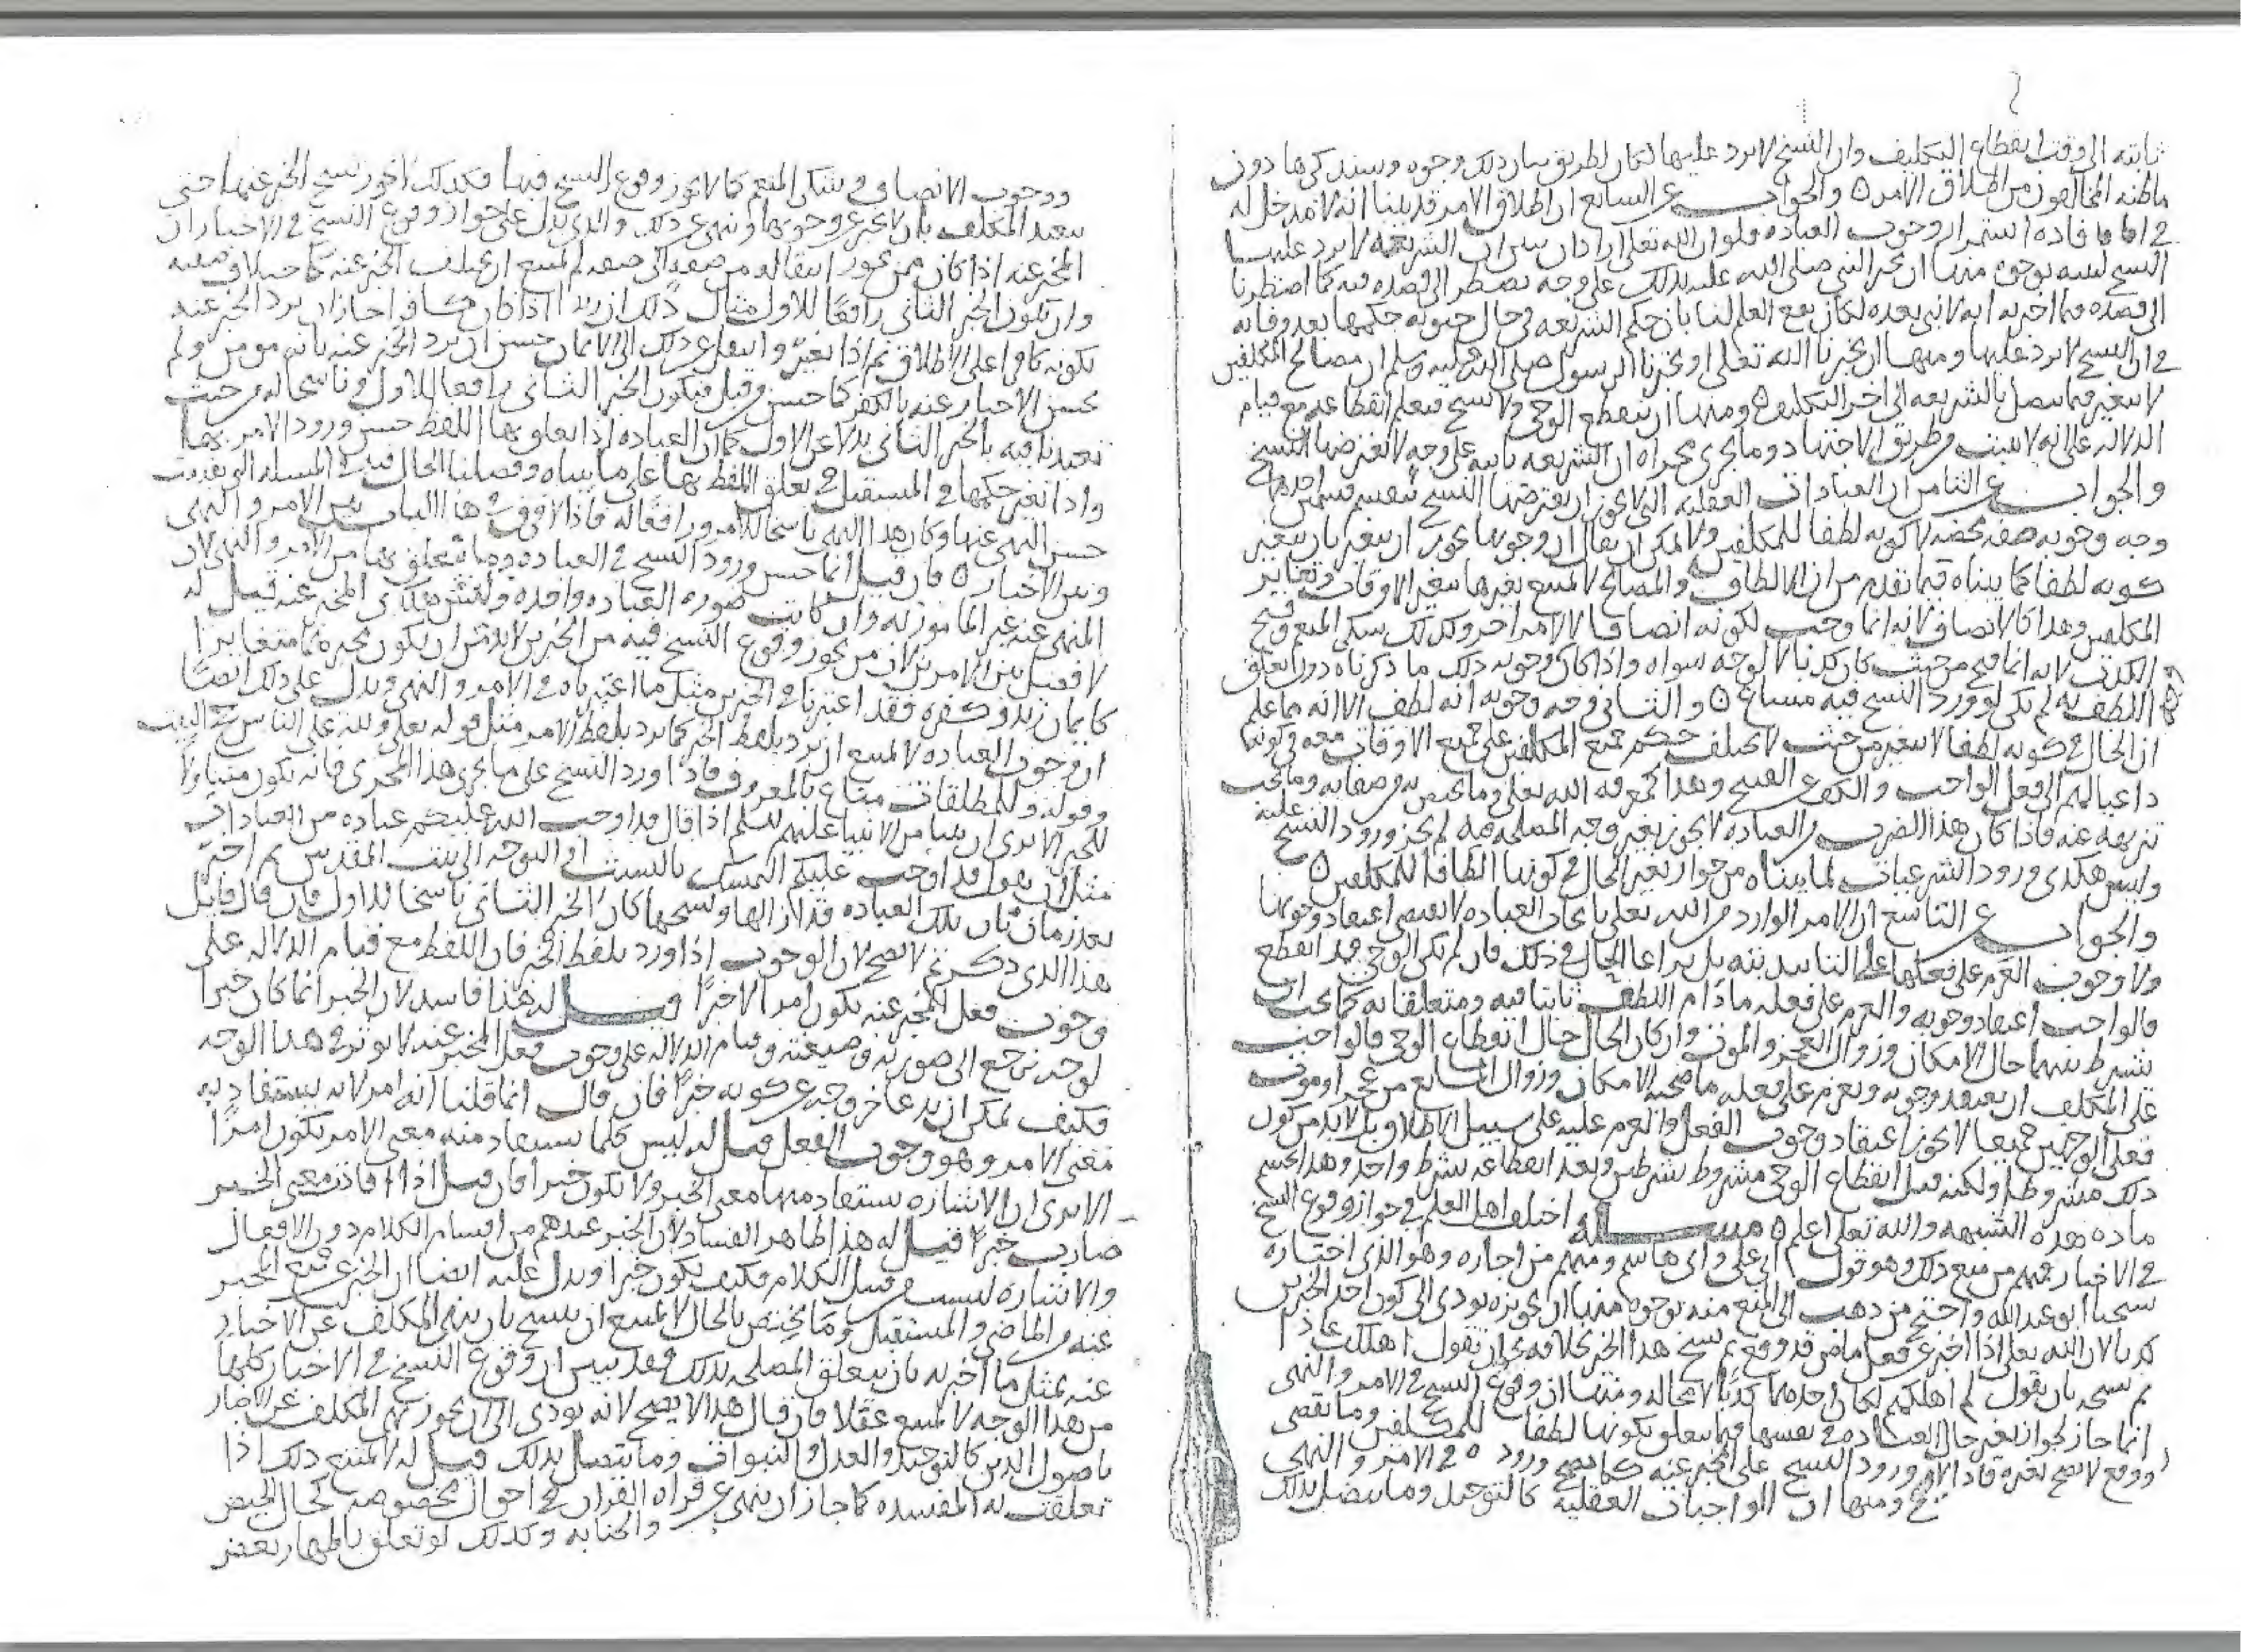 ثابته الى وقت انقطاع التكليف وان النسخ لا يرد عليها لكان لطريق بيان ذلك وجوه وسنذكرها دون
ما ظنه المخالفون من اطلاق الامر ه والجواب عن السابع ان اطلاق الامر قد بينا انه لا مدخل له
في افادة استمرار وجوب العباده ولو ان الله تعالى اراد ان يبين ان الشريعه لا يرد عليها
النسخ لبينه بوجوه منها ان يخبر النبي صلى الله عليه بذلك على وجه نضطر الى قصده فيه كما اضطرنا
الى قصده فيما اخبر به انه لا نبي بعده لكان يقع العلم لنا بان حكم الشريعه في حال حيوته حكمها بعد وفاته
في ان النسخ لا يرد عليها ومنها ان يخبرنا الله تعالى او يخبرنا الرسول صلى الله عليه وسلم ان مصالح المكلفين
لا تتغير فيما يتصل بالشريعه الى اخر التكليف ه ومنها ان ينقطع الوحي ولا نسخ فيعلم انقطاعه مع قيام
الدلاله على انه لا يثبت من طريق الاجتهاد وما يجري مجراه ان الشريعه ثابته على وجه لا يعترضها النسخ
والجواب عن الثامن ان العبادات العقليه التي لا يجوز ان يعترضها النسخ تنقسم قسمين احدهما
وجه وجوبه صفه تخصه لا كونه لطفا للمكلفين ولا يمكن ان يقال ان وجوبها يجوز ان يتغير بان يتغير
كونه لطفا كما بيناه فيما تقدم من ان الالطاف والمصالح لا يمتنع تغيرها بتغير الاوقات وتغاير
المكلفين وهذا كالانصاف لانه انما وجب لكونه انصافا لا لامر اخر وكذلك شكر المنعم وقبح
الكذب لانه انما قبح من حيث كان كذبا لا لوجه سواه واذا كان وجوبه ذلك ما ذكرناه دون تعلق
اللطف به لم يكن لورود النسخ فيه مساغ ه والثاني وجه وجوبه انه لطف الا انه مما علم
ان الحال في كونه لطفا لا يتغير من حيث لا يختلف حكم جميع المكلفين على جميع الاوقات معه في كونها
داعيا لهم الى فعل الواجب والكف عن القبيح وهذا كمعرفه الله تعالى وما يختص به من صفاته وما يجب
تنزيهه عنه فاذا كان هذا الضرب من العباده لا يجوز تغير وجه المصلحه فيه لم يجز ورود النسخ عليه
وليس هكذى ورود الشرعيات لما بيناه من جواز تغير الحال في كونها الطافا للمكلفين ه
والجواب عن التاسع ان الامر الوارد من الله تعالى بايجاد العباده لا يقتضي اعتقاد وجوبها
ولا وجوب العزم على فعلها على التابيد بته بل يراعا الحال في ذلك فان لم يكن الوحي قد انقطع
فالواجب اعتقاد وجوبه والعزم على فعله مادام اللطف ثابتا فيه ومتعلقا به كما يجب ان
نشرط فيهما حال الامكان وزوال العجز والموت وان كان الحال حال انقطاع الوحي فالواجب
على المكلف ان يعتقد وجوبه ويعزم على فعله ما صحبه الامكان وزوال المانع من عجز او موت
فعلى الوجهين جميعا لا يجوز اعتقاد وجوب الفعل والعزم عليه على سبيل الاطلاق بل لا بد من كون
ذلك مشروطا ولكنه قبل انقطاع الوحي مشروط بشرطين وبعد انقطاعه بشرط واحد وهذا يحسم
ماده هذه الشبهه والله تعالى اعلم ه مسـله اختلف اهل العلم في جواز وقوع النسخ
في الاخبار فمنهم من منع ذلك وهو قول ابي علي وابي هاشم ومنهم من اجازه وهو الذي اختاره
شيخنا ابو عبد الله واحتج من ذهب الى المنع منه بوجوه منها ان تجويزه يودي الى كون احد الخبرين
كذبا لان الله تعالى اذا اخبر عن فعل ماض قد وقع ثم نسخ هذا الخبر بخلافه نحو ان يقول اهلكت عادا
ثم نسخه بان يقول لم اهلكهم لكان احدهما كذبا لا محاله ومنها ان وقوع النسخ في الامر والنهي
انما جاز لجواز تغير حال العباده في نفسها فيما يتعلق بكونها لطفا للمكلفين وما تقضى
ووقع لا يصح تغيره فاذا لا ورود النسخ على المخبر عنه كما يصح وروده في الامر والنهي
ومنها ان الواجبات العقليه كالتوحيد وما يتصل بذلك
ووجوب الانصاف وشكر المنعم كما لا يجوز وقوع النسخ فيها فكذلك لا يجوز نسخ الخبر عنها حتى
يتعبد المكلف بان لا يخبر عن وجوبها وينهى عن ذلك والذي يدل على جواز وقوع النسخ في الاخبار ان
المخبر عنه اذا كان ممن يجوز انتقاله من صفه الى صفه لم يمتنع ان يختلف الخبر عنه كما جاز اختلاف صفته
وان يكون الخبر الثاني رافعا للاول مثال ذلك ان زيدا اذا كان كافرا جاز ان يرد الخبر عنه
بكونه كافرا على الاطلاق ثم اذا تغير وانتقل عن ذلك الى الايمان حسن ان يرد الخبر عنه بانه مومن ولم
يحسن الاخبار عنه بالكفر كما حسن من قبل فيكون الخبر الثاني رافعا للاول وناسخا له من حيث
تعبدنا فيه بالخبر الثاني بدلا عن الاول كما ان العباده اذا تعلق بها اللفظ حسن ورود الامر بها
واذا تغير حكمها في المستقبل في تعلق اللفظ بها على ما بيناه وفصلنا الحال فيه في المسله التي تقدمت
حسن النهي عنها وكان هذا النهي ناسخا للامر ورافعا له فاذا لا فرق في هذا الباب بين الامر والنهي
وبين الاخبار ه فان قيل انما حسن ورود النسخ في العباده وما يتعلق بها من الامر والنهي لان
المنهي عنه غير المامور به وان كانت صوره العباده واحده وليس هكذى المخبر عنه قيل له
لا فصل بين الامرين لان من يجوز وقوع النسخ فيه من الخبرين لا بد من ان يكون مخبره متغايرا
كايمان زيد وكفره فقد اعتبرنا في الخبرين مثل ما اعتبرناه في الامر والنهي ويدل على ذلك ايضا
ان وجوب العباده لا يمتنع ان يرد بلفظ الخبر كما يرد بلفظ الامر مثل قوله تعالى ولله على الناس حج البيت
وقوله وللمطلقات متاع بالمعروف فاذا ورد النسخ على ما يجري هذا المجرى فانه يكون متناولا
للخبر الا ترى ان نبيا من الانبيا عليهم السلم اذا قال قد اوجب الله عليكم عباده من العبادات
مثل ان يقول قد اوجب عليكم التمسك بالسبت او التوجه الى بيت المقدس ثم اخبر
بعد زمان بان تلك العباده قد ازالها ونسخها كان الخبر الثاني ناسخا للاول فان قال قايل
هذا الذي ذكرتم لا يصح لان الوجوب اذا ورد بلفظ الخبر فان اللفظ مع قيام الدلاله على
وجوب فعل المخبر عنه يكون امرا لا خبرا قيـل له هذا فاسد لان الخبر انما كان خبرا
لوجه يرجع الى صورته وصيغته وقيام الدلاله على وجوب فعل المخبر عنه لا يوثر في هذا الوجه
فكيف يمكن ان يدعا خروجه عن كونه خبرا فان قال انما قلنا انه امر لانه يستفاد به
معنى الامر وهو وجوب الفعل قيل له ليس كلما يستفاد منه معنى الامر يكون امرا
الا ترى ان الاشاره يستفاد منها معنى الخبر ولا يكون خبرا فان قيل اذا افادت معنى الخبر
صارت خبرا قيل له هذا ظاهر الفساد لان الخبر عندهم من اقسام الكلام دون الافعال
والاشاره ليست من قبيل الكلام فكيف يكون خبرا ويدل عليه ايضا ان الخبر عن جميع المخبر
عنه من الماضي والمستقبل وما يختص بالحال لا يمتنع ان ينسخ بان ينهى المكلف عن الاخبار
عنه بمثل ما اخبر به بان يتعلق المصلحه بذلك فقد تبين ان وقوع النسخ في الاخبار كلها
من هذا الوجه لا يمتنع عقلا فان قال هذا لا يصح لانه يودي الى ان يجوز نهي المكلف عن الاخبار
باصول الدين كالتوحيد والعدل والنبوات وما يتصل بذلك قيل له لا يمتنع ذلك اذا
تعلقت به المفسده كما جاز ان ينهى عن قراه القران في احوال مخصوصه كحال الحيض
والجنابه وكذلك لو تعلق باظهار بعض